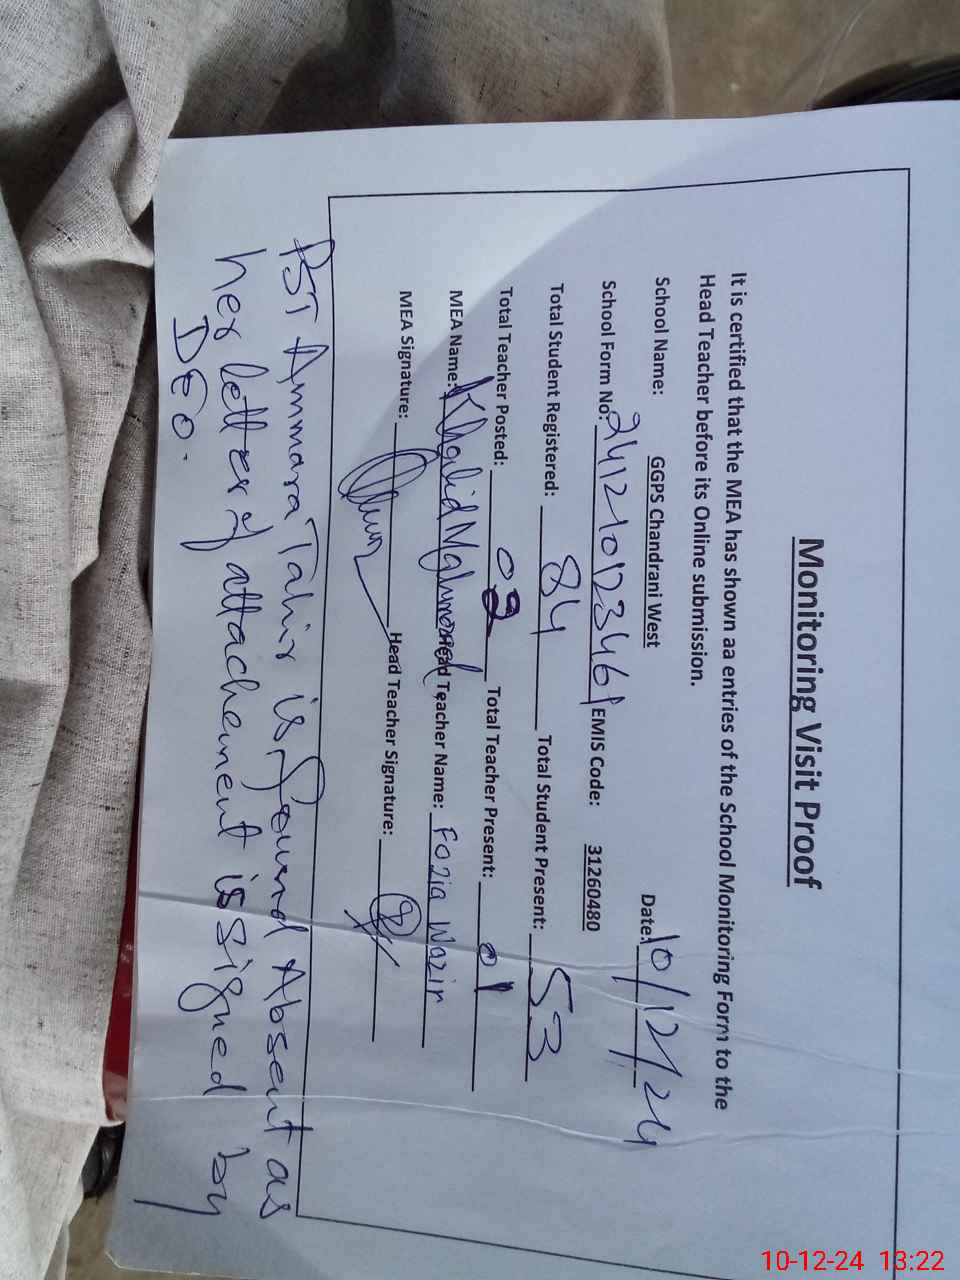 Monitoring Visit Proof
It is certified that the MEA has shown aa entries of the School Monitoring Form to the
Head Teacher before its Online submission.
School Name: GGPS Chandrani West Date: 10/12/24
School Form No: 24121012346 EMIS Code: 31260480
Total Student Registered: 84 Total Student Present: 53
Total Teacher Posted: 02 Total Teacher Present: 01
MEA Name: Khalid Mahmood Head Teacher Name: Fozia Wazir
MEA Signature: Head Teacher Signature:
PST Ammara Tahir is found Absent as
her letter of attachement is signed by
DEO.
10-12-24 13:22